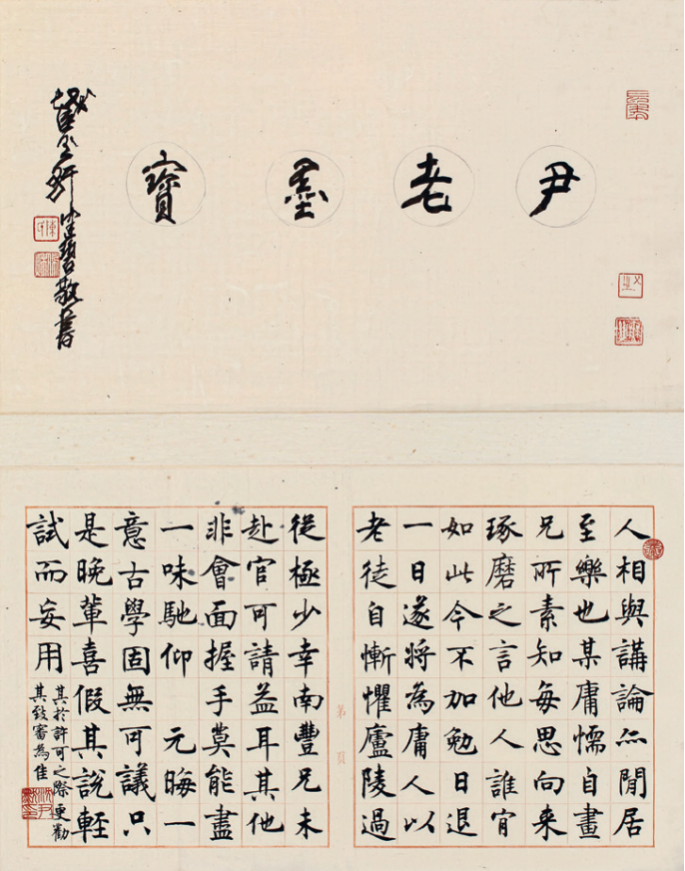 尹老墨寶
建碧敬書
人相與講論亦閒居
至樂也某庸懦自畫
兄所素知每思向来
琢磨之言他人誰肯
如此今不加勉日退
一日遂將為庸人以
老徒自慚懼廬陵過
第 頁
從極少幸南豐兄未
赴官可請益耳其他
非會面握手莫能盡
一味馳仰 元晦一
意古學固無可議只
是晚輩喜假其說輕
試而妄用
其於許可之際更勸
其致審為佳
沈尹默印